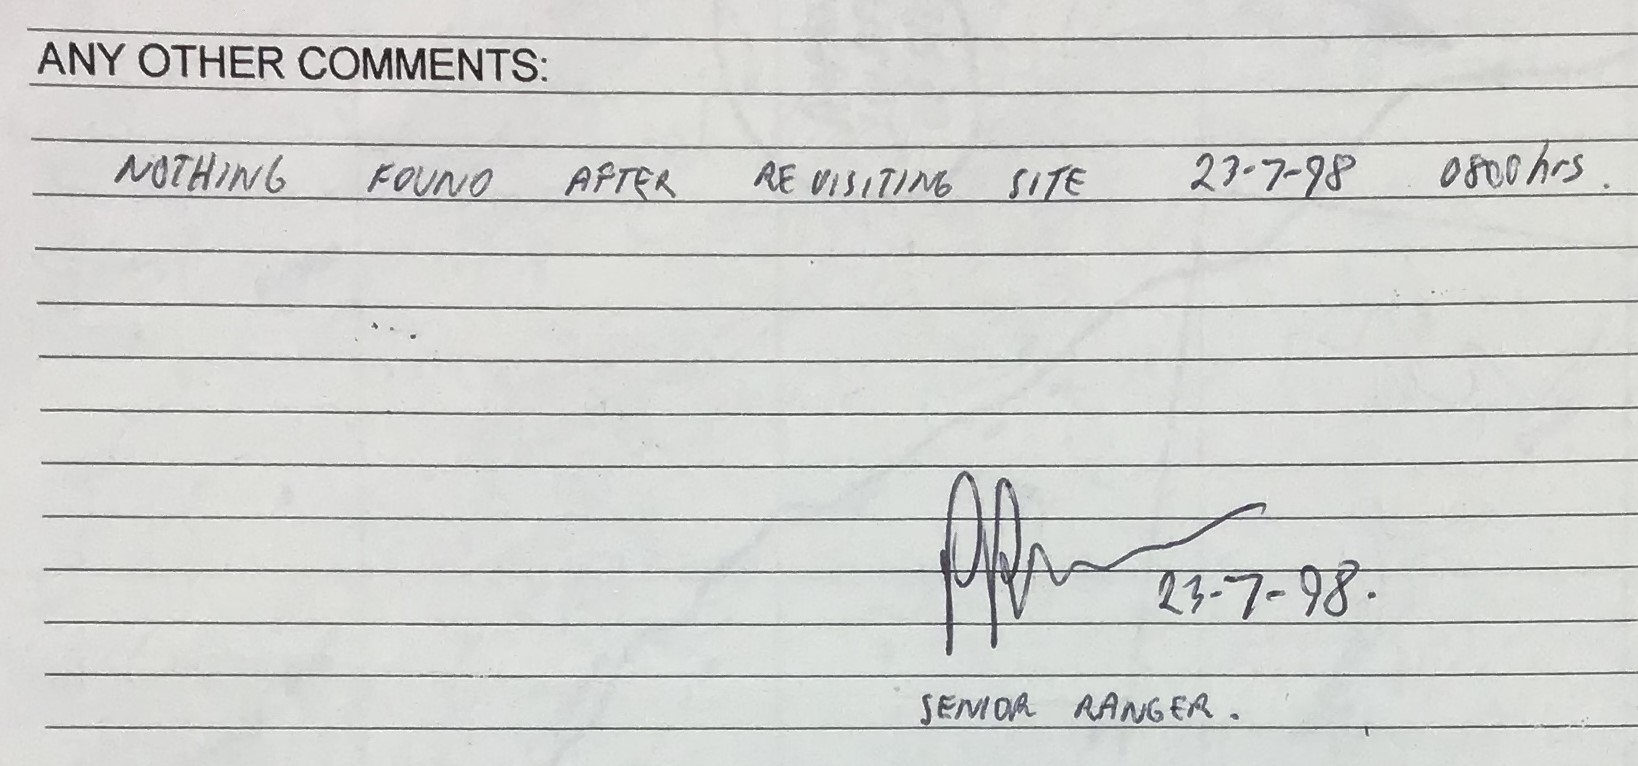 ANY OTHER COMMENTS:
NOTHING FOUND AFTER REVISITING SITE 23-7-98 0800hrs.
23-7-98.
SENIOR RANGER.